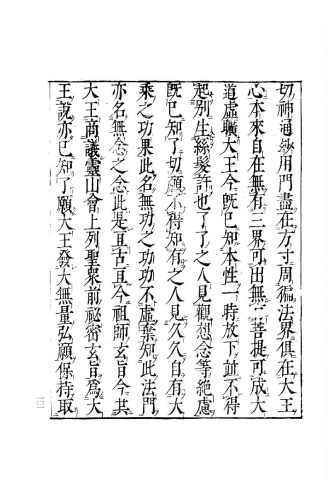 切神通妙用門盡在方寸周徧法界俱在大王
心本來自在無有三界可出無二菩提可成大
道虛曠大王今旣已知本性一時放下並不得
起別生絲髮許也了了之人見觀想念等絶慮
旣已知了切願不得知有之人見久久自有大
乘之功果此名無功之功功不虛棄知此法門
亦名無念之念此是亘古亘今祖師玄旨今其
大王商議靈山會上列聖衆前祕密玄旨爲大
王說亦已知了願大王發大無量弘願保持取